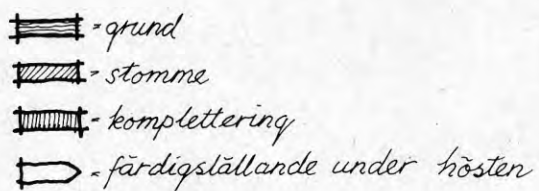 = grund
= stomme
= komplettering
= färdigställande under hösten